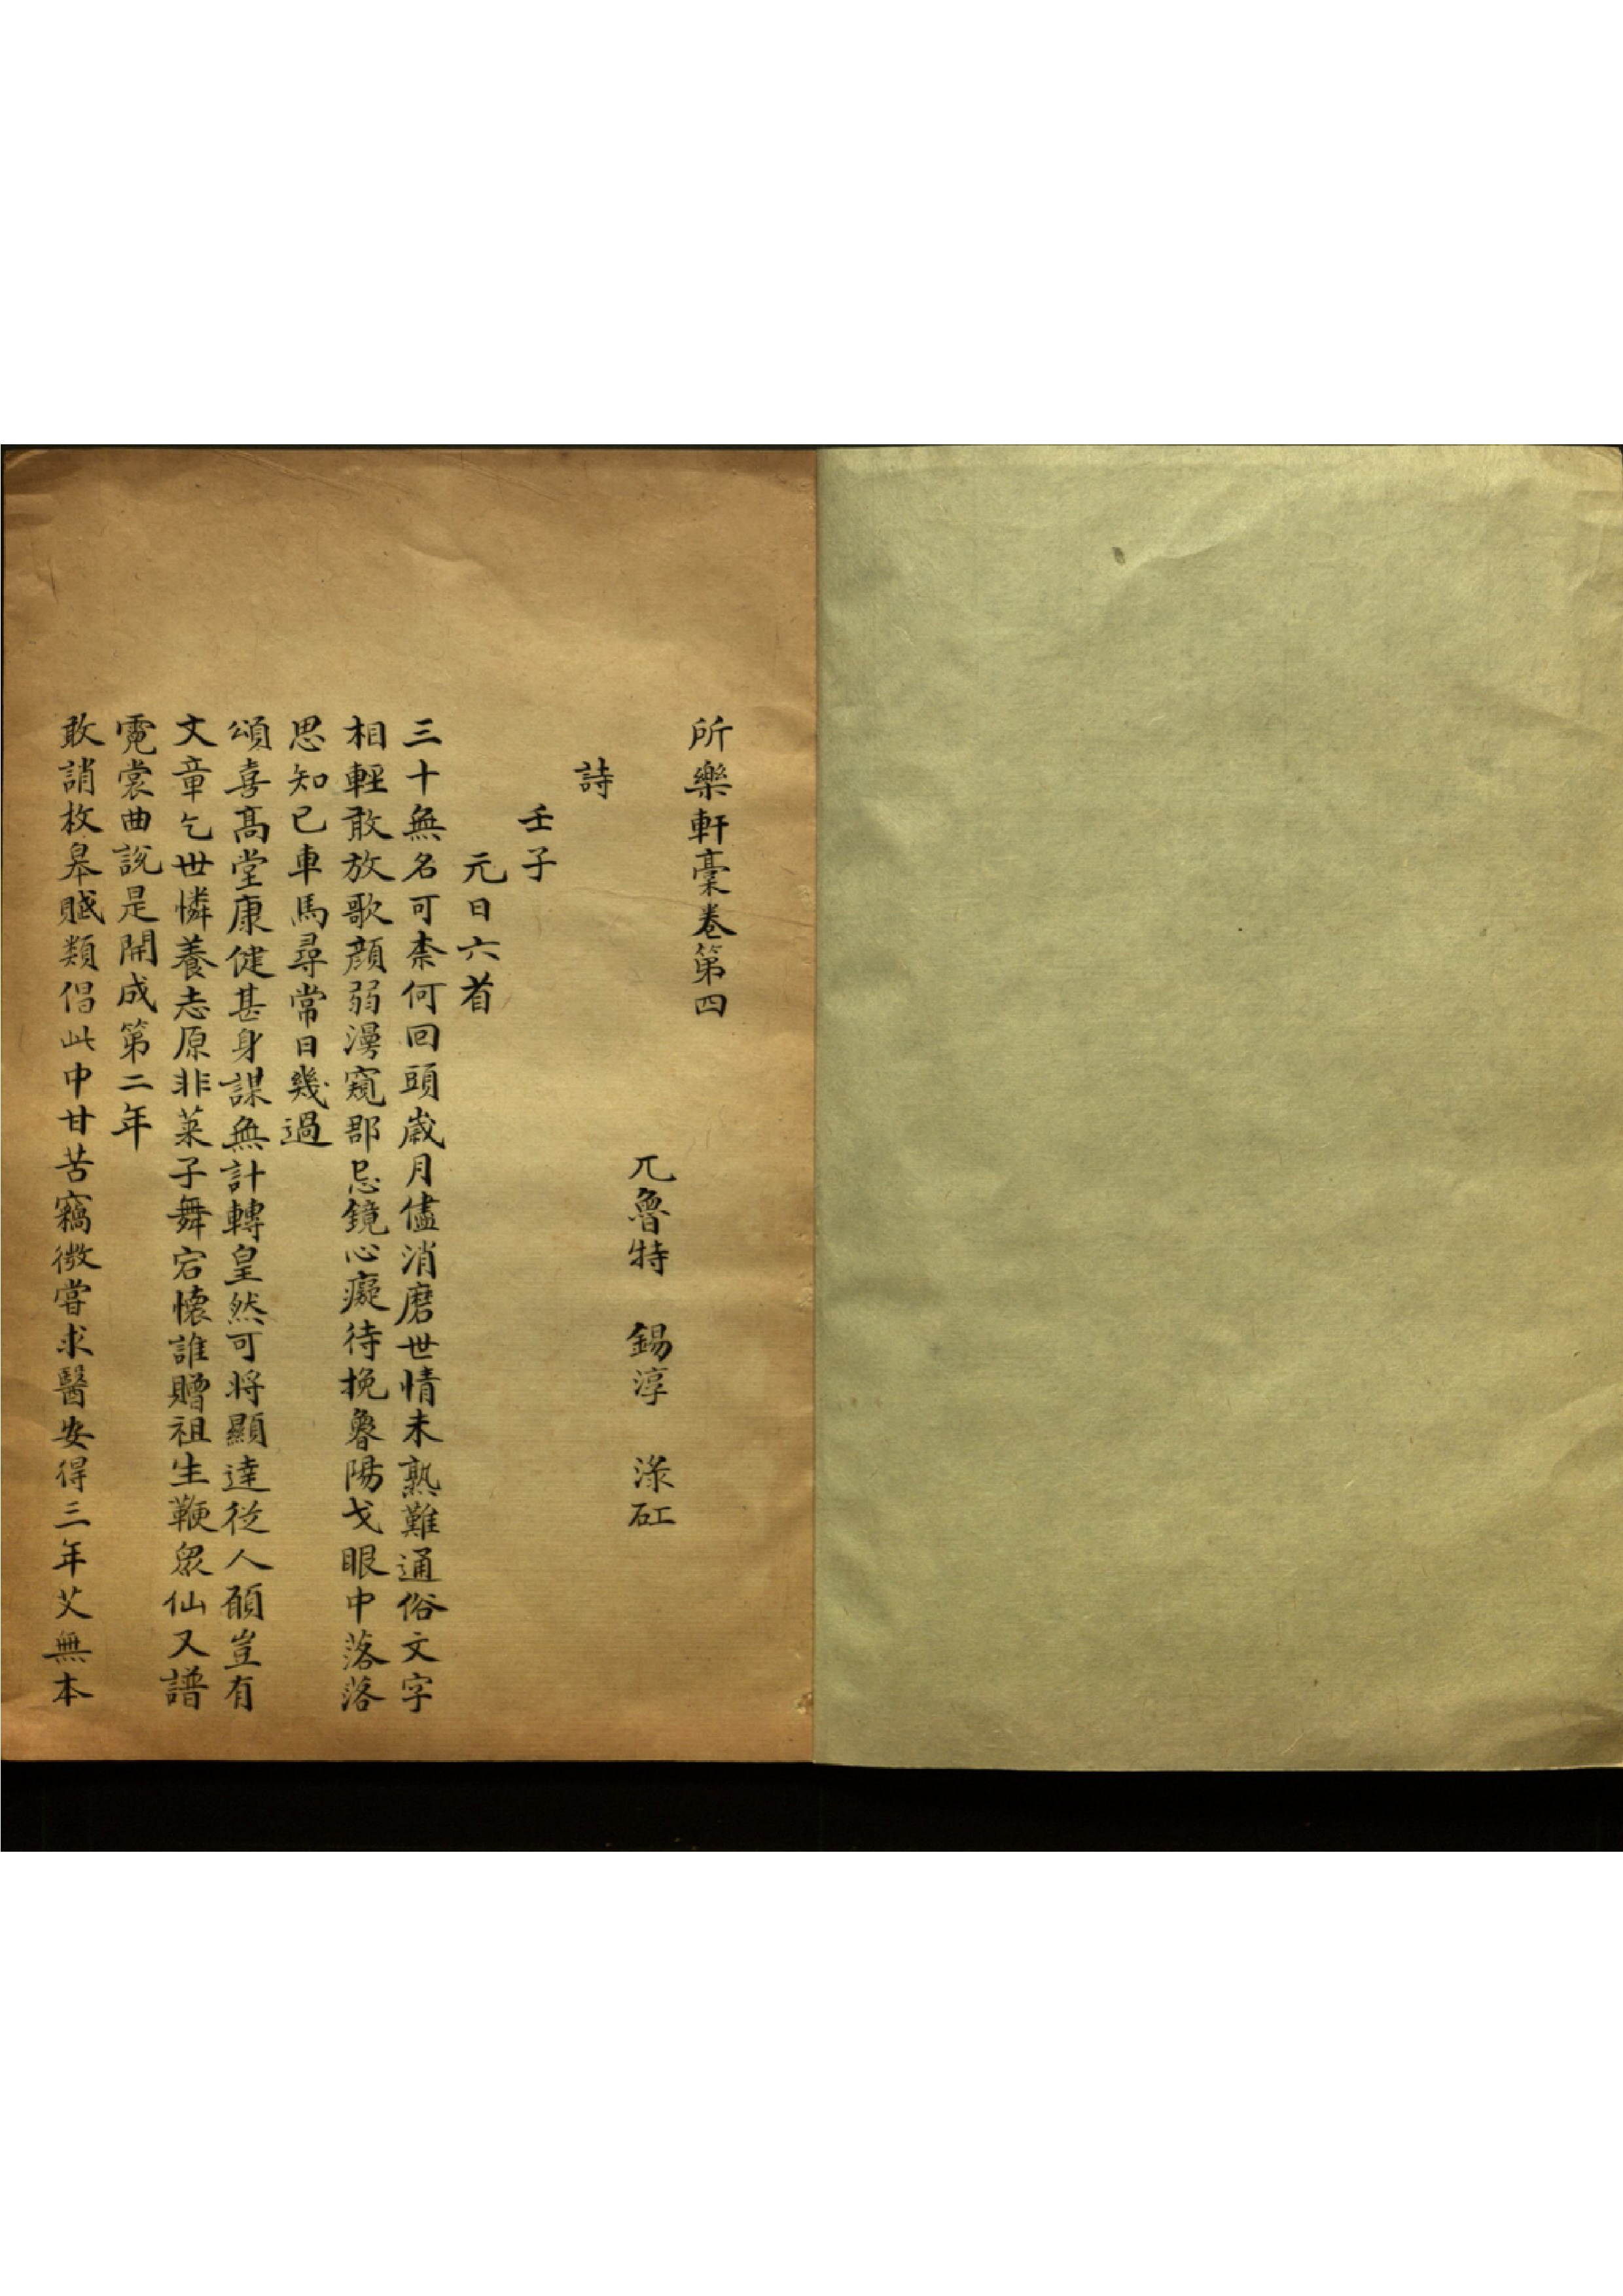 所樂軒稾卷第四
兀魯特　錫淳　淥矼
詩
壬子
元日六首
三十無名可柰何回頭歲月儘消磨世情未熟難通俗文字
相輕敢放歌顏弱漫窺郡忌鏡心癡待挽魯陽戈眼中落落
思知己車馬尋常日幾過
頌喜髙堂康健甚身謀無計轉皇然可將顯達從人願豈有
文章乞世憐養志原非萊子舞宕懷誰贈祖生鞭衆仙又譜
霓裳曲說是開成第二年
敢誚枚皋賦類倡此中甘苦竊微嘗求醫安得三年艾無本